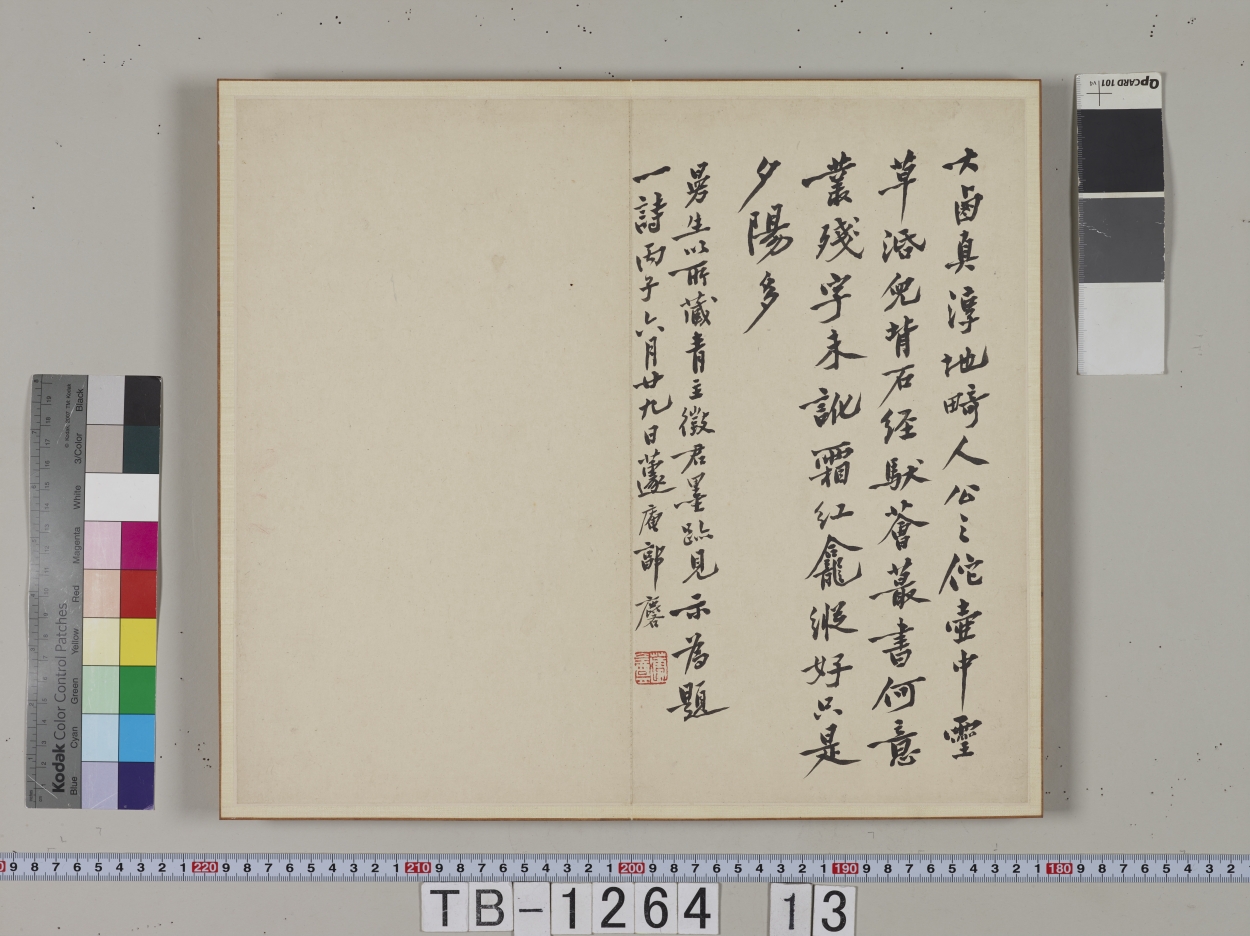 大鹵真淳地畸人公之佗壺中靈
草活兒背石经馱薈蕞書何意
叢殘字未訛霜紅龕縱好只是
夕陽多
生以所藏青主徵君墨跡見示為題
一詩丙子六月廿九日蘧庵郭麐
QPCARD 101
Kodak Color Control Patches
Blue Cyan Green Yellow Red Magenta White 3/Color Black
9 8 7 6 5 4 3 2 1 220 9 8 7 6 5 4 3 2 1 210 9 8 7 6 5 4 3 2 1 200 9 8 7 6 5 4 3 2 1 190 9 8 7 6 5 4 3 2 1 180 9 8 7 6 5 4 3 2
TB-1264 13